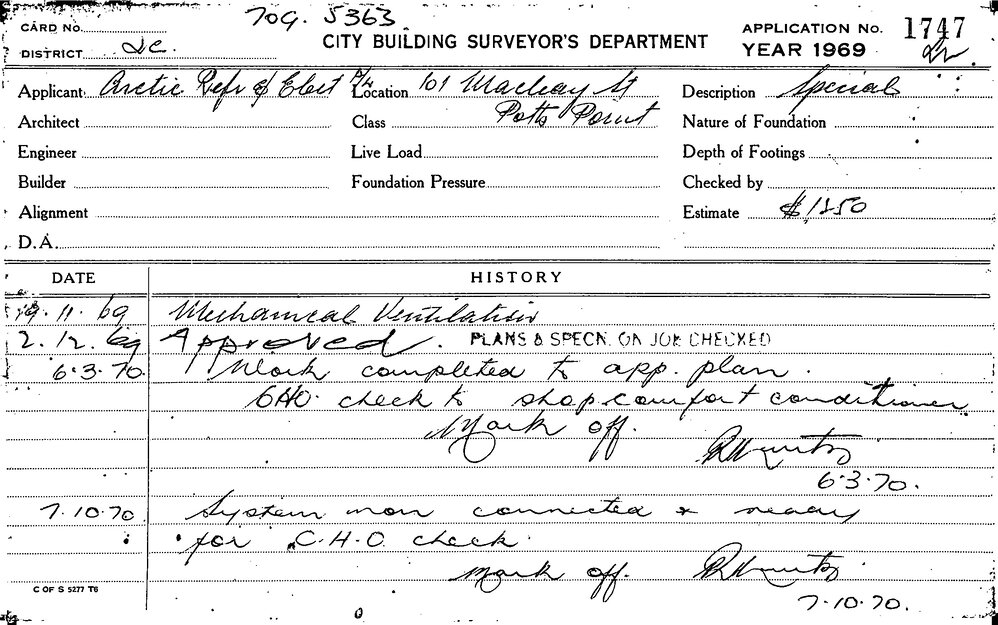 709. 5363
CARD No.
DISTRICT
CITY BUILDING SURVEYOR'S DEPARTMENT
APPLICATION No. 1747
YEAR 1969
Applicant Arctic Refr & Elect P/L
Location 101 Macleay St
Potts Point
Description Special
Architect
Class
Nature of Foundation
Engineer
Live Load
Depth of Footings
Builder
Foundation Pressure
Checked by
Alignment
Estimate $1250
D.A.
DATE HISTORY
19.11.69 Mechanical Ventilation
2.12.69 Approved. PLANS & SPECN. ON JOB CHECKED
6.3.70. Work completed to app. plan.
CHO. check to shop comfort conditioner.
Mark off.
6.3.70.
7.10.70. System now connected & ready
for C.H.O. check.
mark off.
7.10.70.
C OF S 5277 T6